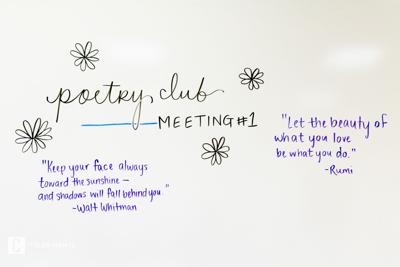 poetry club
MEETING #1
"Let the beauty of
what you love
be what you do."
-Rumi
"Keep your face always
toward the sunshine —
and shadows will fall behind you."
-Walt Whitman